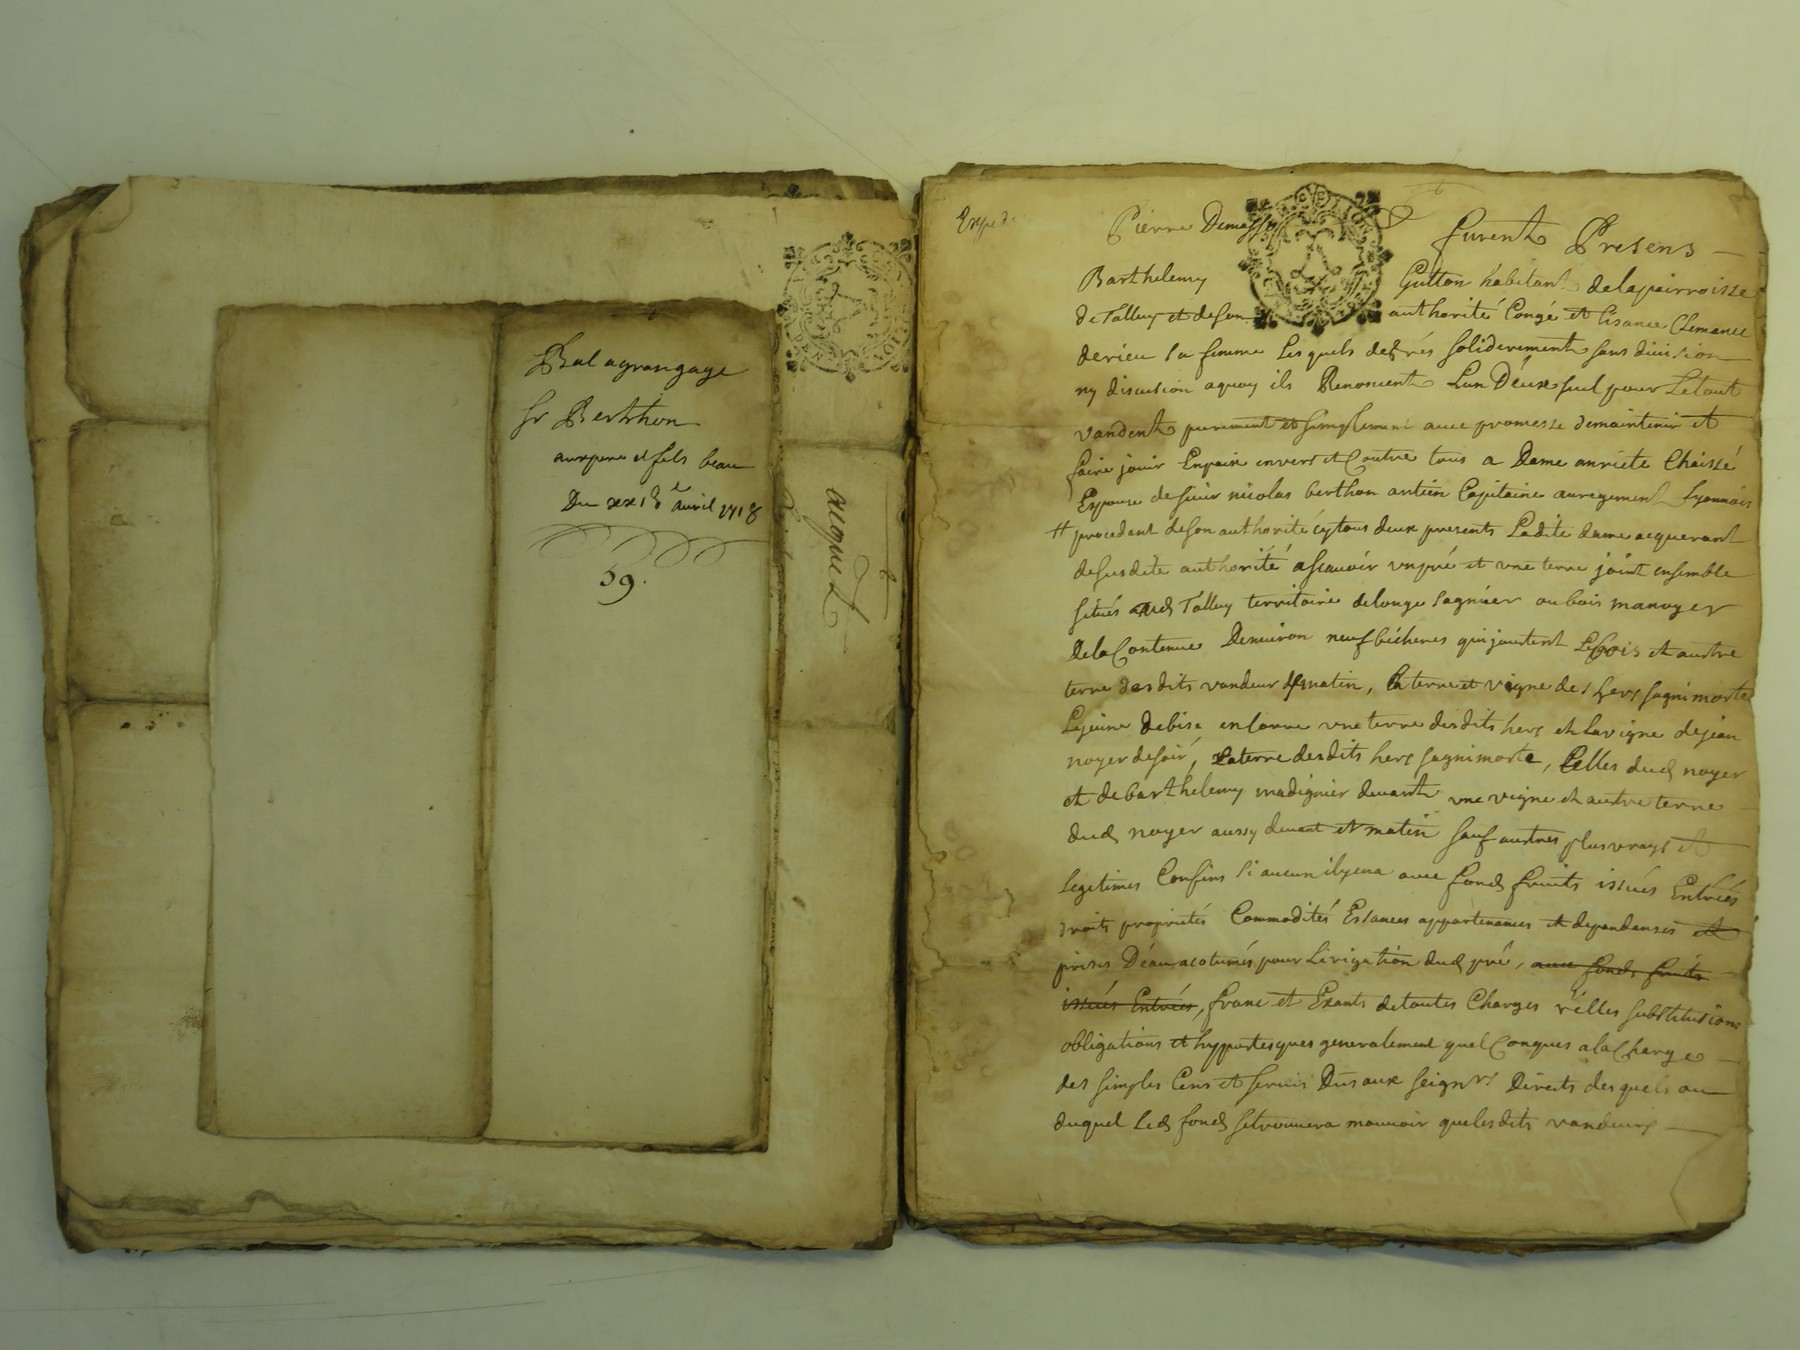 Bail agrangage
Sr Berthon
aux pere et fils beau
Du xxi8e avril 1718
59.
acquet
Exped
Pierre furent Presens
Barthelemy Gutton habitant delaparroisse
de Talluy et deson authorité Congé et lisance Clemance
derieu sa femme Lesquels de grés soliderement sans division
ny discution aquoy ils Renoncent Lun Deux seul pour Letout
vandent purement et simplement avec promesse demaintenir et
faire jouir Enpaix envers et Contre tous a Dame anriete Chaissé
Espouze de sieur nicolas berthon antien Capitaine auregement Lyonnois
# procedant deson authorité cy tous deux presents Ladite dame acquerant
desusdite authorité ascavoir unpré et une terre joint ensemble
situés aud Talluy territoire delonge sagnier ou bois manoyer
Dela Contenue Denviron neuf bicherees qui joustent Lebois et autre
terre desdits vandeur dematin, la terre et vigne des hers sagnimorte
Lejeune debise enlorne une terre desdits hers et la vigne dejean
noyer desoir, Laterre desdits hers sagnimorte, Celles dud noyer
et debarthelemy madignier devant une vigne et autre terre
dud noyer aussy devant et matin sauf autres plus vrays et
legitimes Confins si aucun ilyena avec fond fruits issués Entrées
droits proprietés Commodités Esiances appartenances et dependenses et
prises Deau acotumés pour Lirigation dud pré, avec fonds fruits
issués Entrées, franc et Exants detoutes Charges réelles substitutions
obligations et hyppotesques generalement quelConques ala Charge
des simples Cens et servis Dus aux seigrs Directs desquels ou
duquel Led fond setrouvera mouvoir quelesdits vandeurs